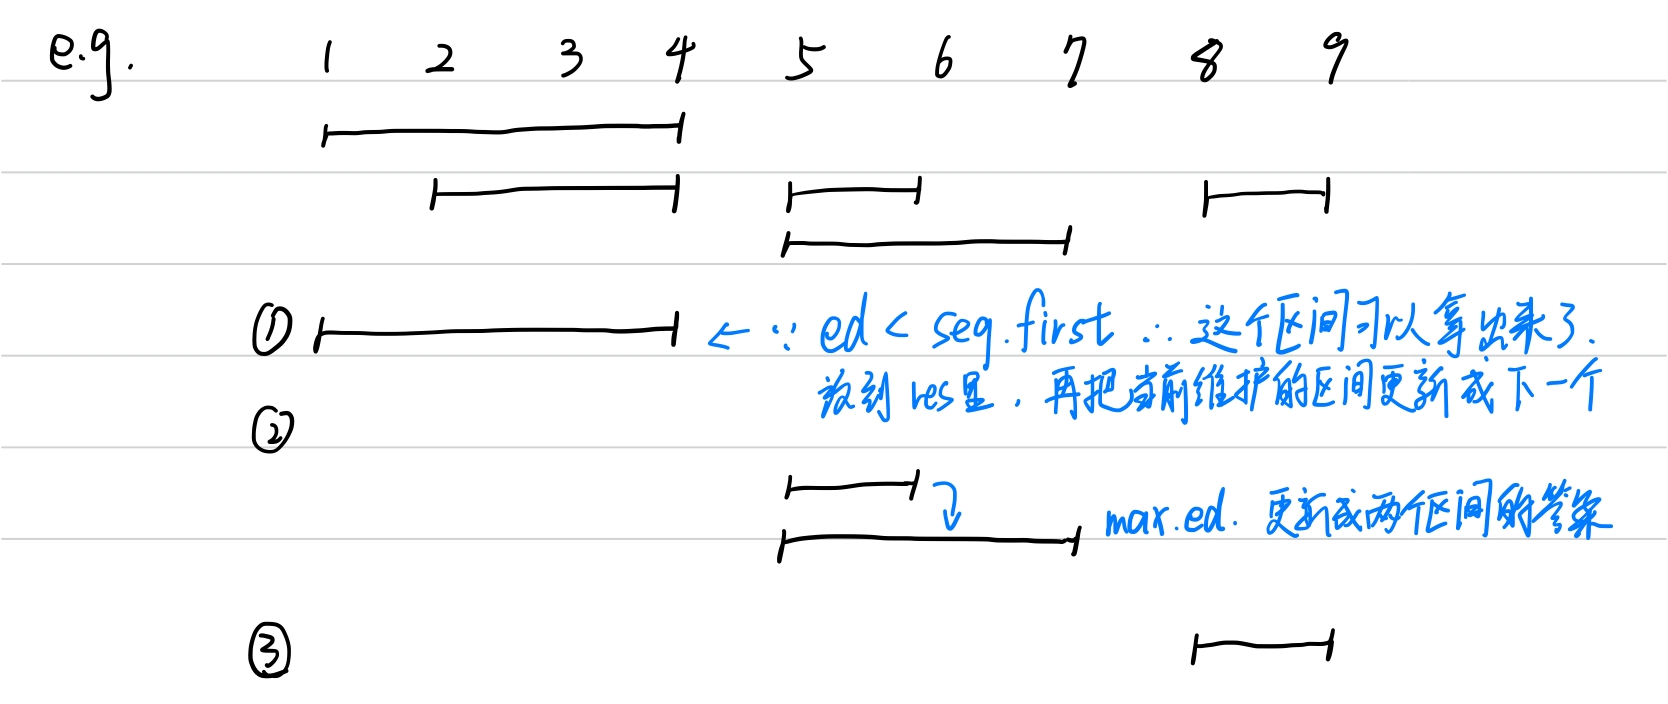 e.g. 1 2 3 4 5 6 7 8 9
① ← ∵ ed < seg.first ∴ 这个区间可以拿出来了.
放到 res里, 再把当前维护的区间更新成下一个
②
max.ed. 更新成两个区间的答案
③